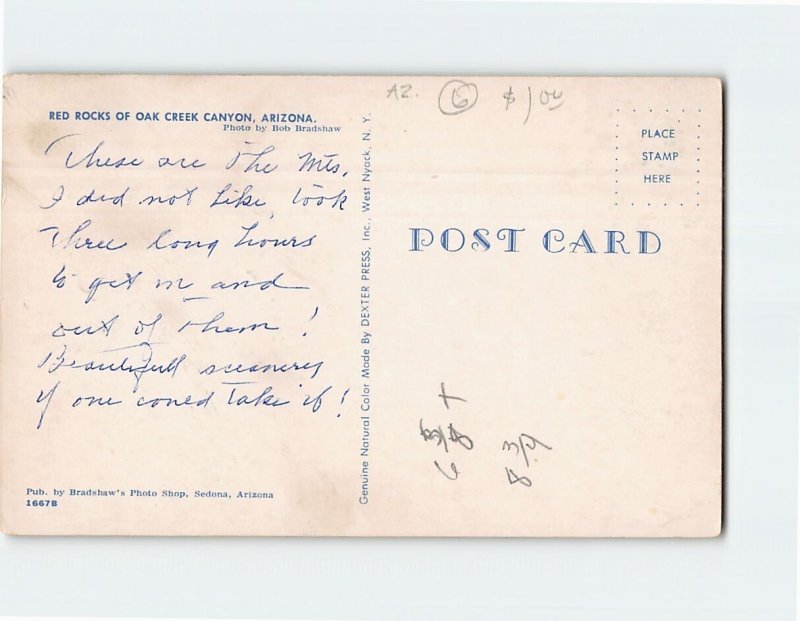 AZ. 6 $1.00
RED ROCKS OF OAK CREEK CANYON, ARIZONA.
Photo by Bob Bradshaw
These are The Mts.
I did not like, Took
Three long hours
to get in and
out of Them!
Beautifull sceanery
if one coned take it!
Pub. by Bradshaw's Photo Shop, Sedona, Arizona
16678
Genuine Natural Color Made By DEXTER PRESS, Inc., West Nyack, N. Y.
PLACE
STAMP
HERE
POST CARD